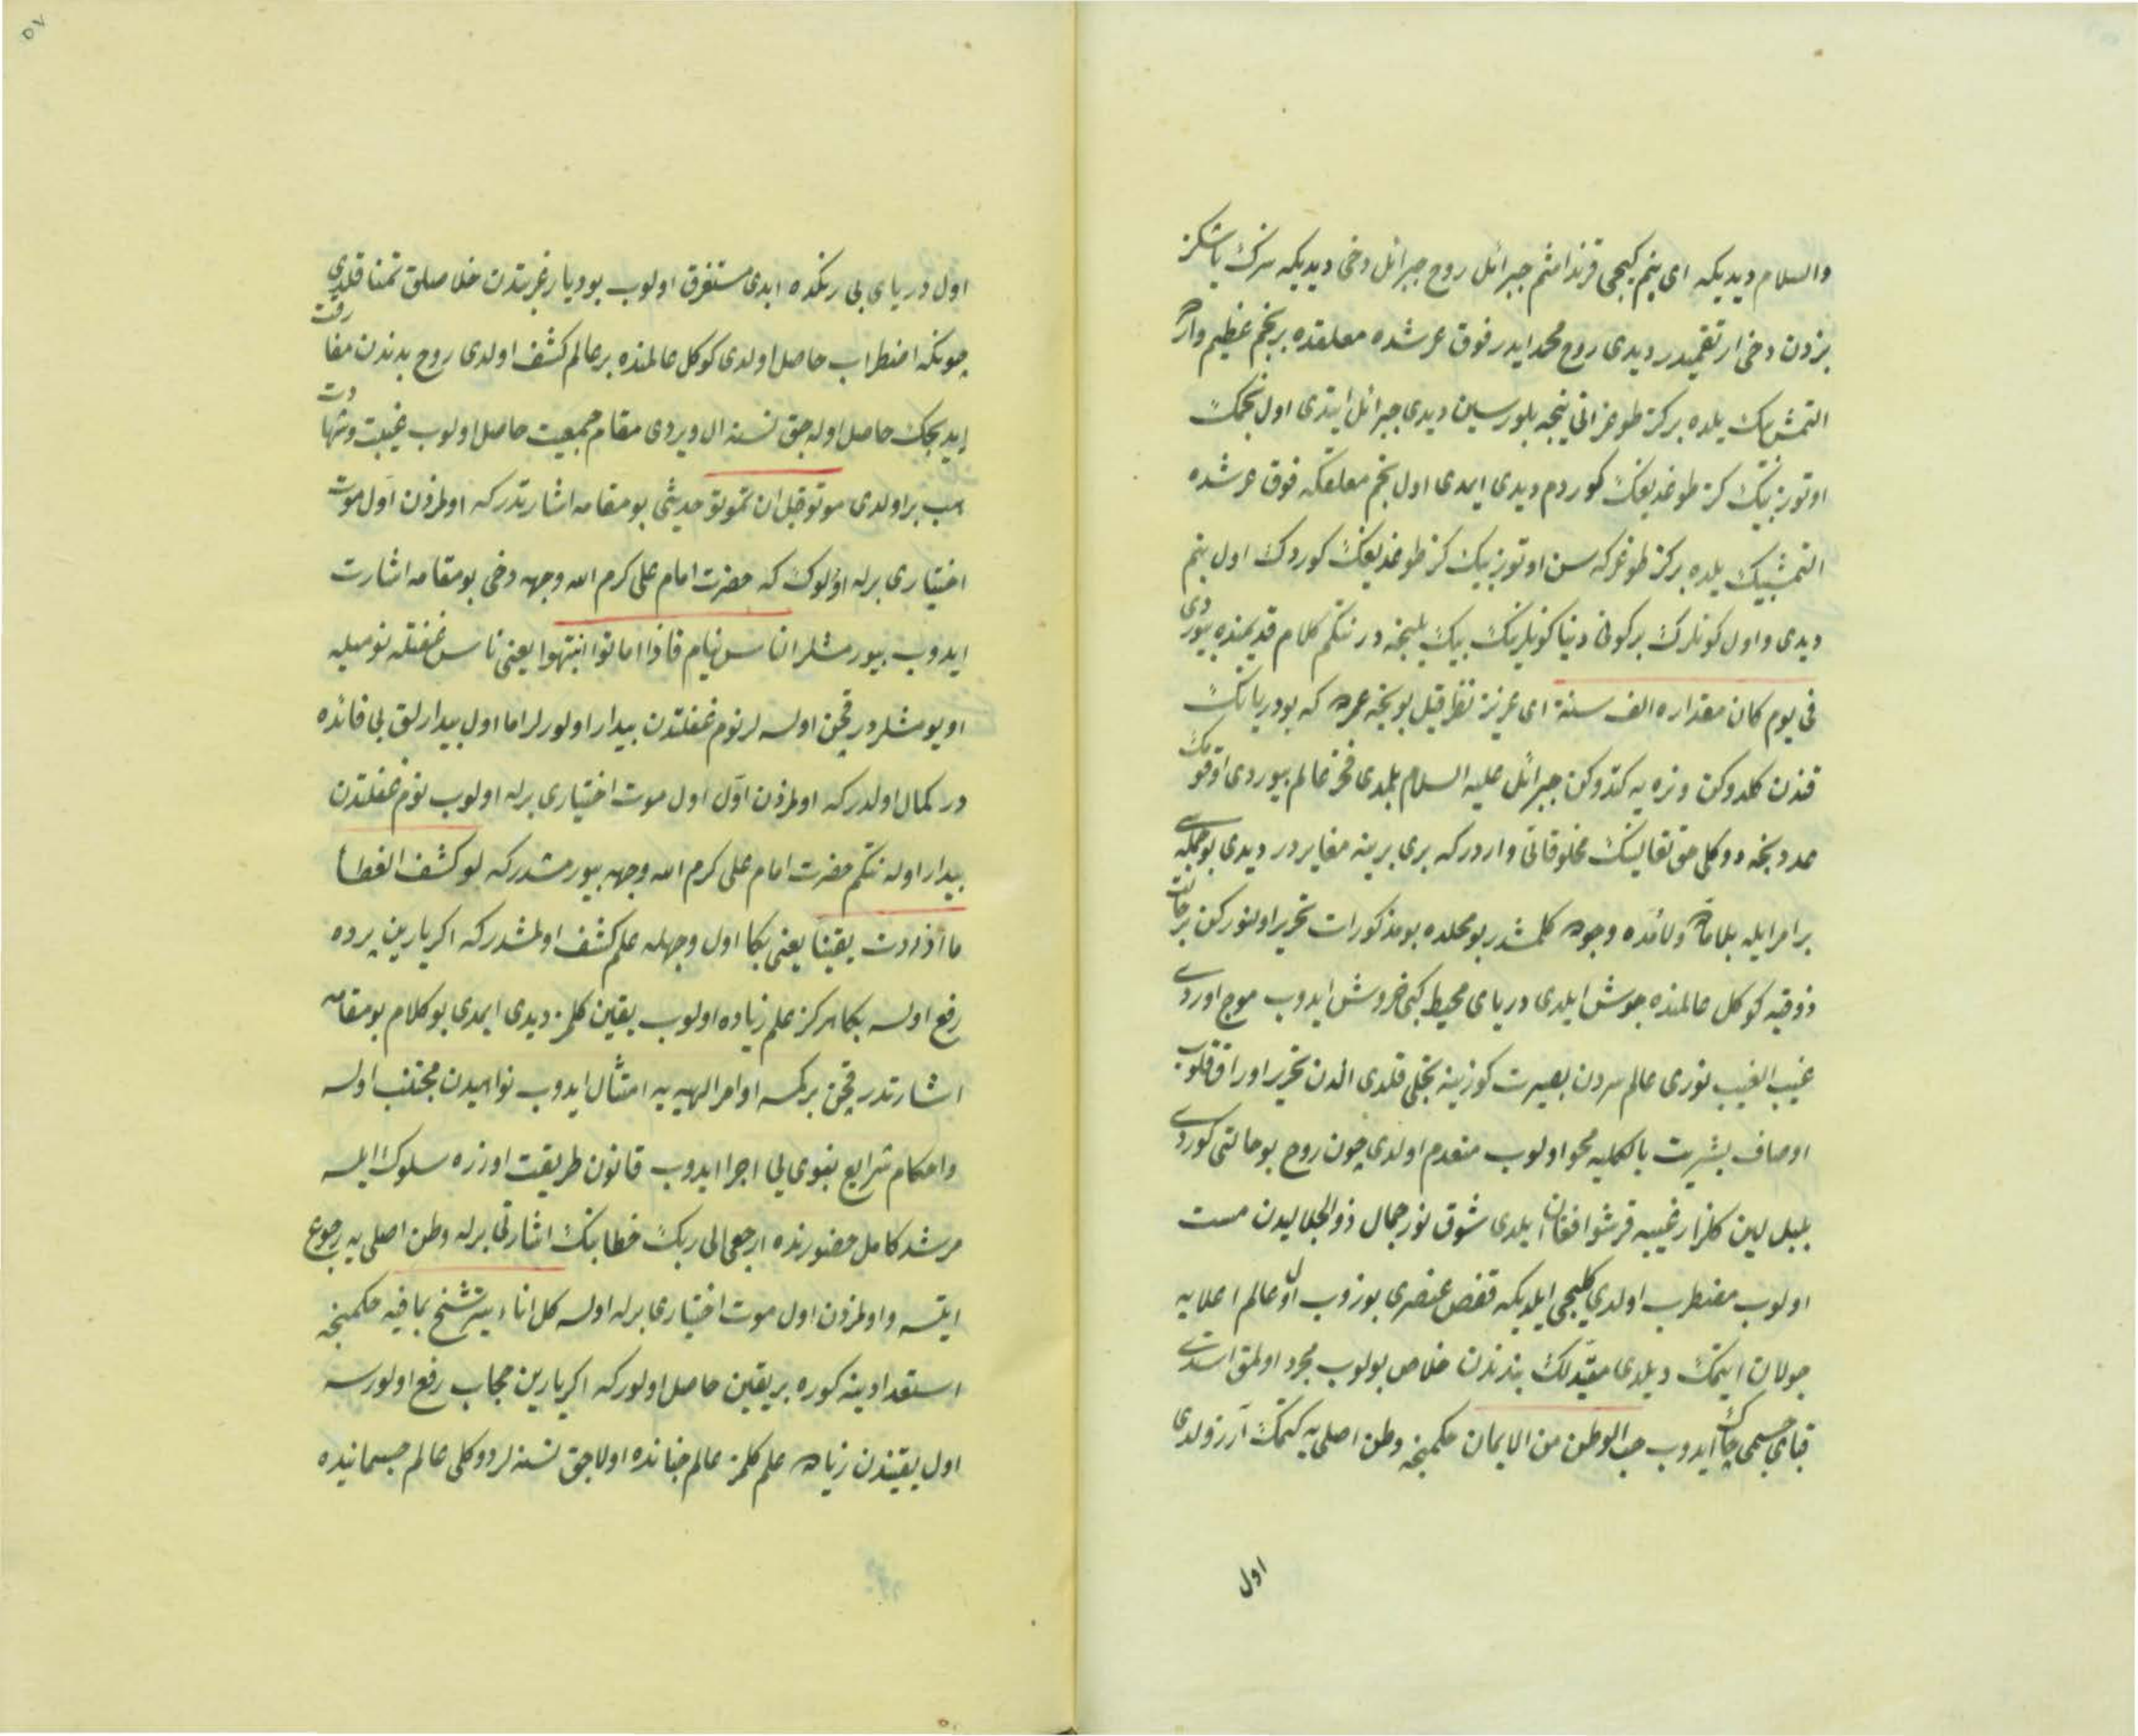 والسلام ديديكه اى بنم كيجى قرنداشم جبرائل روح جبرائل دخى ديديكه سزك ياشكز
بزدن دخى ارتقميدر ديدى روح محمد ايدر فوق عرشده معلقده بر نجم عظيم واردر
التمش بيك يلده بر كز طوغر انى نيجه بلورسين ديدى جبرائل ايتدى اول نجمك
اوتوز بيك كز طوغديغك كوردم ديدى ايمدى اول نجم معلقكه فوق عرشده
التمش بيك يلده بر كز طوغر كه سن اوتوز بيك كز طوغديغك كوردك اول بنم
ديدى و اول كونلرك بر كونى دنيا كونلرينك بيك يلنجه در نتكم كلام قديمنده بيوردى
فى يوم كان مقداره الف سنة اى عزيز نظر قيل بو نيجه عمردر كه بو دريانك
قندن كلدوكن و نره يه كتدوكن جبرائل عليه السلام بلمدى فخر عالم بيوردى اوقومك
عددنجه دوكلى حق تعالينك مخلوقاتى واردر كه برى برينه مغايردر ديدى بو جمله سى
بر امر ايله بلا ماده ولا مده وجوده كلمشدر بو محلده بو مذكورات تحرير اولنوركن بر حالت
ذوقيه كوكل عالمنده جوش ايلدى درياى محيط كبى خروش ايدوب موج اوردى
غيب الغيب نورى عالم سردن بصيرت كوزينه تجلى قلدى الدن تحرير اوراق قلوب
اوصاف بشريت بالكليه محو اولوب منعدم اولدى چون روح بو حالتى كوردى
بلبل لين كلزار غيبيه قرشو افغان ايلدى شوق نور جمال ذو الجلاليدن مست
اولوب مضطرب اولدى كليجى ايلديكه قفص عنصرى بوزوب اول عالم اعلايه
جولان ايتمك ديلدى مقيدلك بندندن خلاص بولوب مجرد اولمق استدى
قباى جسمى چاك ايدوب حب الوطن من الايمان حكمنجه وطن اصلى يه كيتمك آرزولدى
اول
اول درياى بى رنكده ابدى مستغرق اولوب بو ديار غربتدن خلاصلق تمنا قلدى
چونكه اضطراب حاصل اولدى كوكل عالمنده بر عالم كشف اولدى روح بدندن مفارقت
ايديجك حاصل اوله جق نسنه ال ويردى مقام جمعيت حاصل اولوب غيبت و شهادت
هپ بر اولدى موتوا قبل ان تموتوا حديثى بو مقامه اشارتدر كه اولمزدن اول موت
اختيارى برله اولوك كه حضرت امام على كرم الله وجهه دخى بو مقامه اشارت
ايدوب بيورمشلر الناس نيام فاذا ماتوا انتبهوا يعنى ناس غفلته نوميله
اويومشلردر قچن اولسه لر نوم غفلتدن بيدار اولورلر اما اول بيدارلق بى فائده
در كمال اولدر كه اولمزدن اول اول موت اختيارى برله اولوب نوم غفلتدن
بيدار اوله نتكم حضرت امام على كرم الله وجهه بيورمشدر كه لو كشف الغطا
ما ازددت يقينا يعنى بكا اول وجهله علم كشف اولمشدر كه اكر يارين پرده
رفع اولسه بكا هركز علم زياده اولوب يقين كلمز ديدى ايمدى بو كلام بو مقامه
اشارتدر قچن بر كمسه اوامر الهيه يه امتثال ايدوب نواهيدن مجتنب اولسه
و احكام شرايع نبوى يى اجرا ايدوب قانون طريقت اوزره سلوك ايلسه
مرشد كامل حضورنده ارجعى الى ربك خطابنك اشارتى برله وطن اصلى يه رجوع
ايتسه و اولمزدن اول موت اختيارى برله اولسه كل اناء يترشح بما فيه حكمنجه
استعدادينه كوره بر يقين حاصل اولور كه اكر يارين حجاب رفع اولورسه
اول يقيندن زياده علم كلمز عالم جنانده اولاجق نسنه لر دوكلى عالم جسمانيده